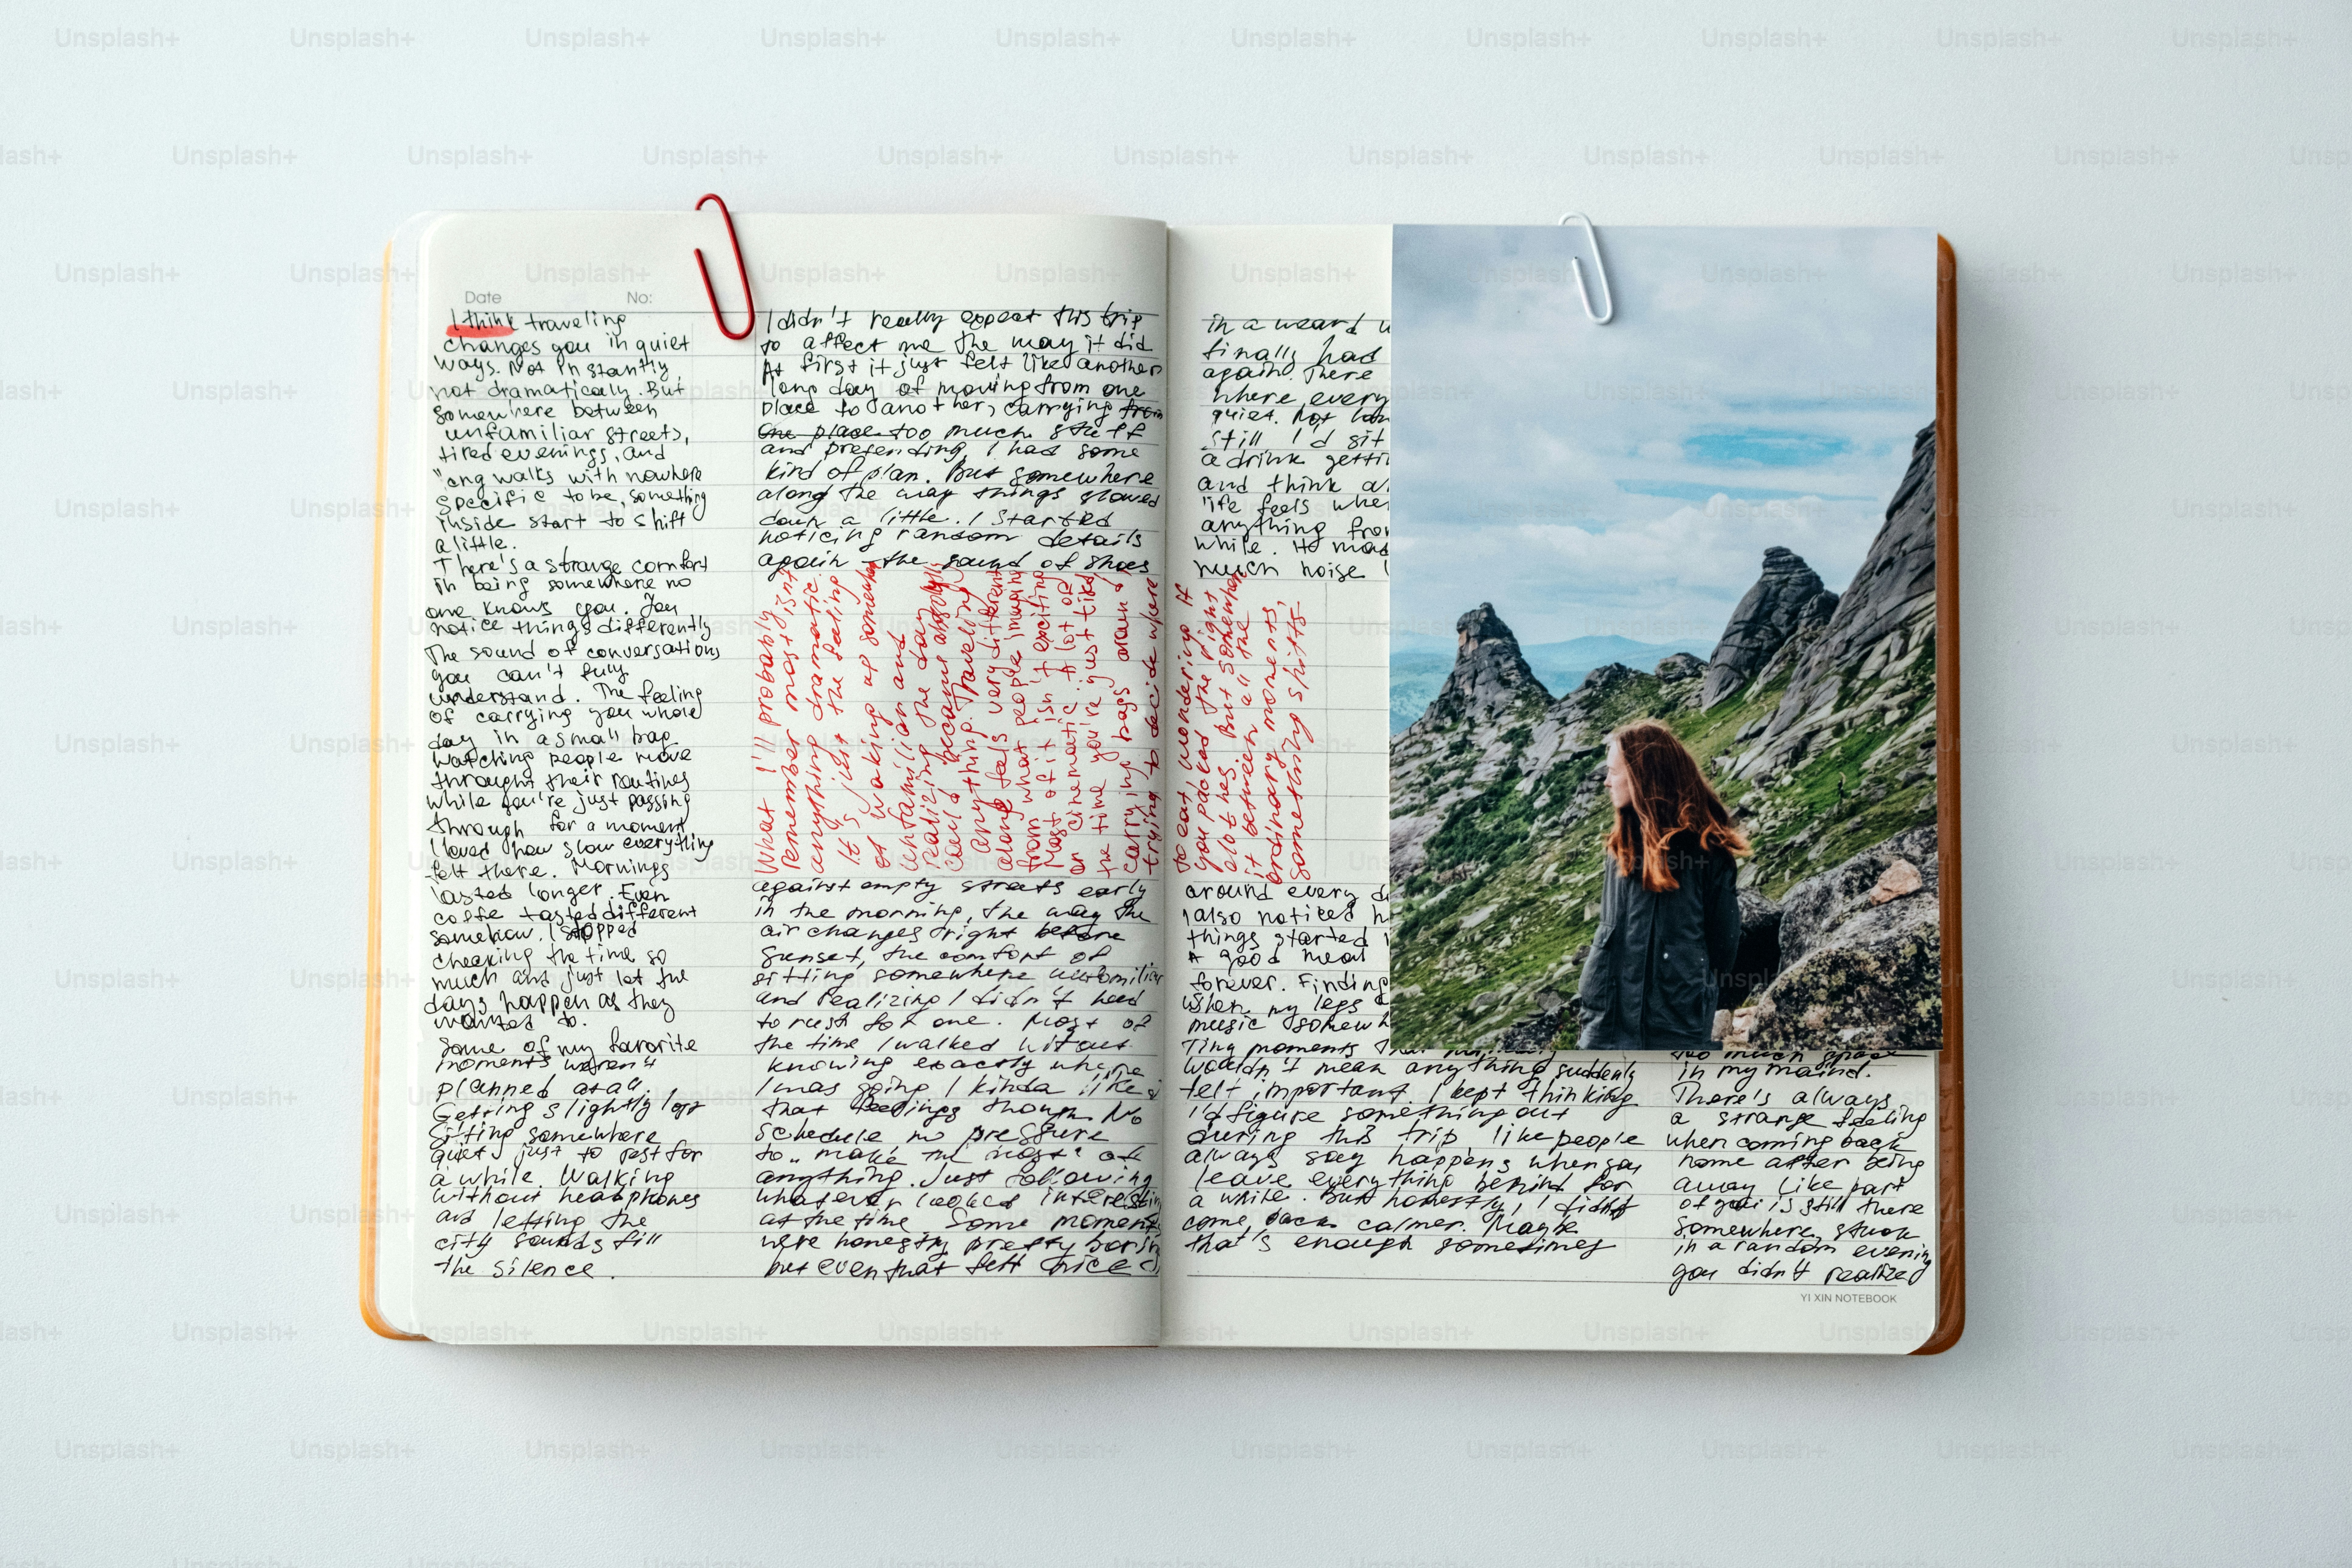 Date No:
I think traveling
changes you in quiet
ways. Not instantly,
not dramatically. But
somewhere between
unfamiliar streets,
tired evenings, and
long walks with nowhere
specific to be, something
inside start to shift
a little.
There's a strange comfort
in being somewhere no
one knows you. You
notice things differently
The sound of conversations
you can't fully
understand. The feeling
of carrying you whole
day in a small bag
watching people move
throught their routines
while you're just passing
through for a moment
I loved how slow everything
felt there. Mornings
lasted longer. Even
coffe tasted different
somehow. I stopped
checking the time so
much and just let the
days happen as they
wanted to.
Some of my favorite
moments weren't
planned at all.
Getting slightly lost
Sitting somewhere
quiet just to rest for
a while. Walking
without headphones
and letting the
city sounds fill
the silence.
I didn't really expect this trip
to affect me the way it did
At first it just felt like another
long day of moving from one
place to another, carrying from
one place too much stuff
and pretending I had some
kind of plan. But somewhere
along the way things slowed
down a little. I started
noticing random details
again the sound of shoes
What I'll probably
remember most isn't
anything dramatic.
It's just the feeling
of waking up somewhere
unfamiliar and
realizing the day
could become
anything. Traveling
alone feels very different
from what people imagine
Most of it isn't exciting
or cinematic. A lot of
the time you're just tired
carrying bags around,
trying to decide where
against empty streets early
in the morning, the way the
air changes right before
sunset, the comfort of
sitting somewhere unfamiliar
and realizing I didn't need
to rush for one. Most of
the time I walked without
knowing exactly where
I was going I kinda like
that feelings though No
schedule no pressure
to „make the most" of
anything. Just following
whatever looked interesting
at the time Some moments
were honestly pretty boring
but even that felt nice
in a weard
finally had
again. There
where every
quiet. Not
still I'd sit
a drink getti
and think
life feels whe
anything from
while.
much noise
to eat, wondering if
you packed the right
clothes. But somewhere
it between all the
ordinary moments,
something shifts.
around every
I also noticed
things started
A good meal
forever. Finding
when my legs
music somewh
Tiny moments
wouldn't mean anything suddenly
felt important. I kept thinking
I'd figure something out
during this trip like people
always say happens when you
leave everything behind for
a while. But honestly, I didn't
come back calmer. Maybe
that's enough sometimes
too much space
in my maind.
There's always
a strange feeling
when coming back
home after being
away like part
of you is still there
somewhere, stuck
in a random evening
you didn't realized
YI XIN NOTEBOOK
Unsplash+